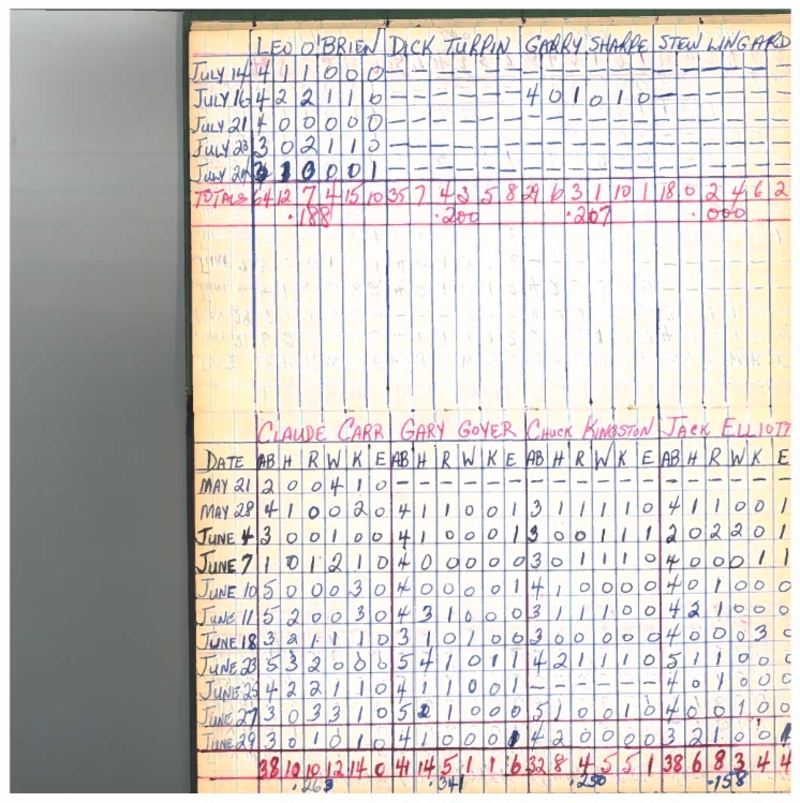 LEO O'BRIEN DICK TURPIN GARRY SHARPE STEW LINGARD
JULY 14 4 1 1 0 0 0 — — — — — — — — — — — — — — — — — —
JULY 16 4 2 2 1 1 0 — — — — — — 4 0 1 0 1 0 — — — — — —
JULY 21 4 0 0 0 0 0 — — — — — — — — — — — — — — — — — —
JULY 23 3 0 2 1 1 0 — — — — — — — — — — — — — — — — — —
JULY 3 1 0 0 0 1 — — — — — — — — — — — — — — — — — —
TOTALS 64 12 7 4 15 10 35 7 4 3 5 8 29 6 3 1 10 1 18 0 2 4 6 2
.188 .200 .207 .000
CLAUDE CARR GARY GOYER CHUCK KINGSTON JACK ELLIOTT
DATE AB H R W K E AB H R W K E AB H R W K E AB H R W K E
MAY 21 2 0 0 4 1 0 — — — — — — — — — — — — — — — — — —
MAY 28 4 1 0 0 2 0 4 1 1 0 0 1 3 1 1 1 1 0 4 1 1 0 0 1
JUNE 4 3 0 0 1 0 0 4 1 0 0 0 1 3 0 0 1 1 1 2 0 2 2 0 1
JUNE 7 1 0 1 2 1 0 4 0 0 0 0 0 3 0 1 1 1 0 4 0 0 0 1 1
JUNE 10 5 0 0 0 3 0 4 0 0 0 0 1 4 1 0 0 0 0 4 0 1 0 0 0
JUNE 11 5 2 0 0 3 0 4 3 1 0 0 0 3 1 1 1 0 0 4 2 1 0 0 0
JUNE 18 3 2 1 1 1 0 3 1 0 1 0 0 3 0 0 0 0 0 4 0 0 0 3 0
JUNE 23 5 3 2 0 0 0 5 4 1 0 1 1 4 2 1 1 1 0 5 1 1 0 0 0
JUNE 25 4 2 2 1 1 0 4 1 1 0 0 1 — — — — — — 4 0 1 0 0 0
JUNE 27 3 0 3 3 1 0 5 2 1 0 0 0 5 1 0 0 1 0 4 0 0 1 0 0
JUNE 29 3 0 1 0 1 0 4 1 0 0 0 1 4 2 0 0 0 0 3 2 1 0 0 1
38 10 10 12 14 0 41 14 5 1 1 6 32 8 4 5 5 1 38 6 8 3 4 4
.263 .341 .250 .158